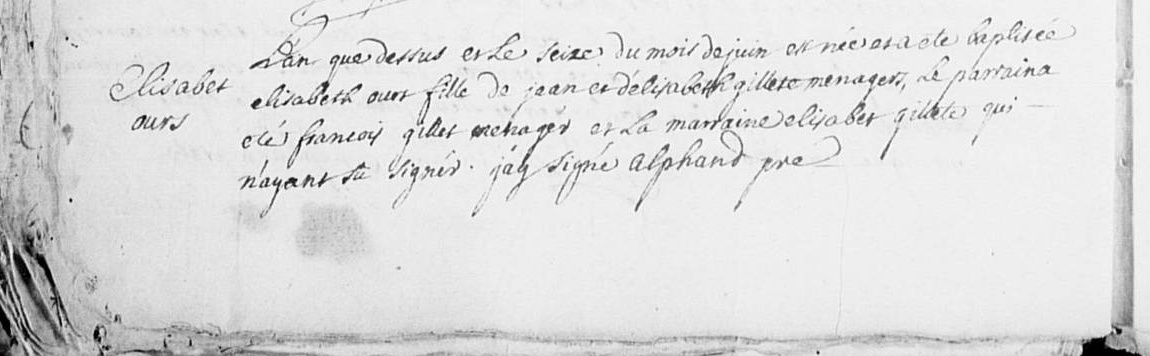 L'an que dessus et le seize du mois de juin est née et a ete baptisée
Elisabet
elisabeth ours fille de jean et d'élisabeth gillete menagers, Le parrain a
ours
eté francois gillet menager et La marraine elisabet gillete qui
n'ayant su signér. j'ay signé Alphand pre